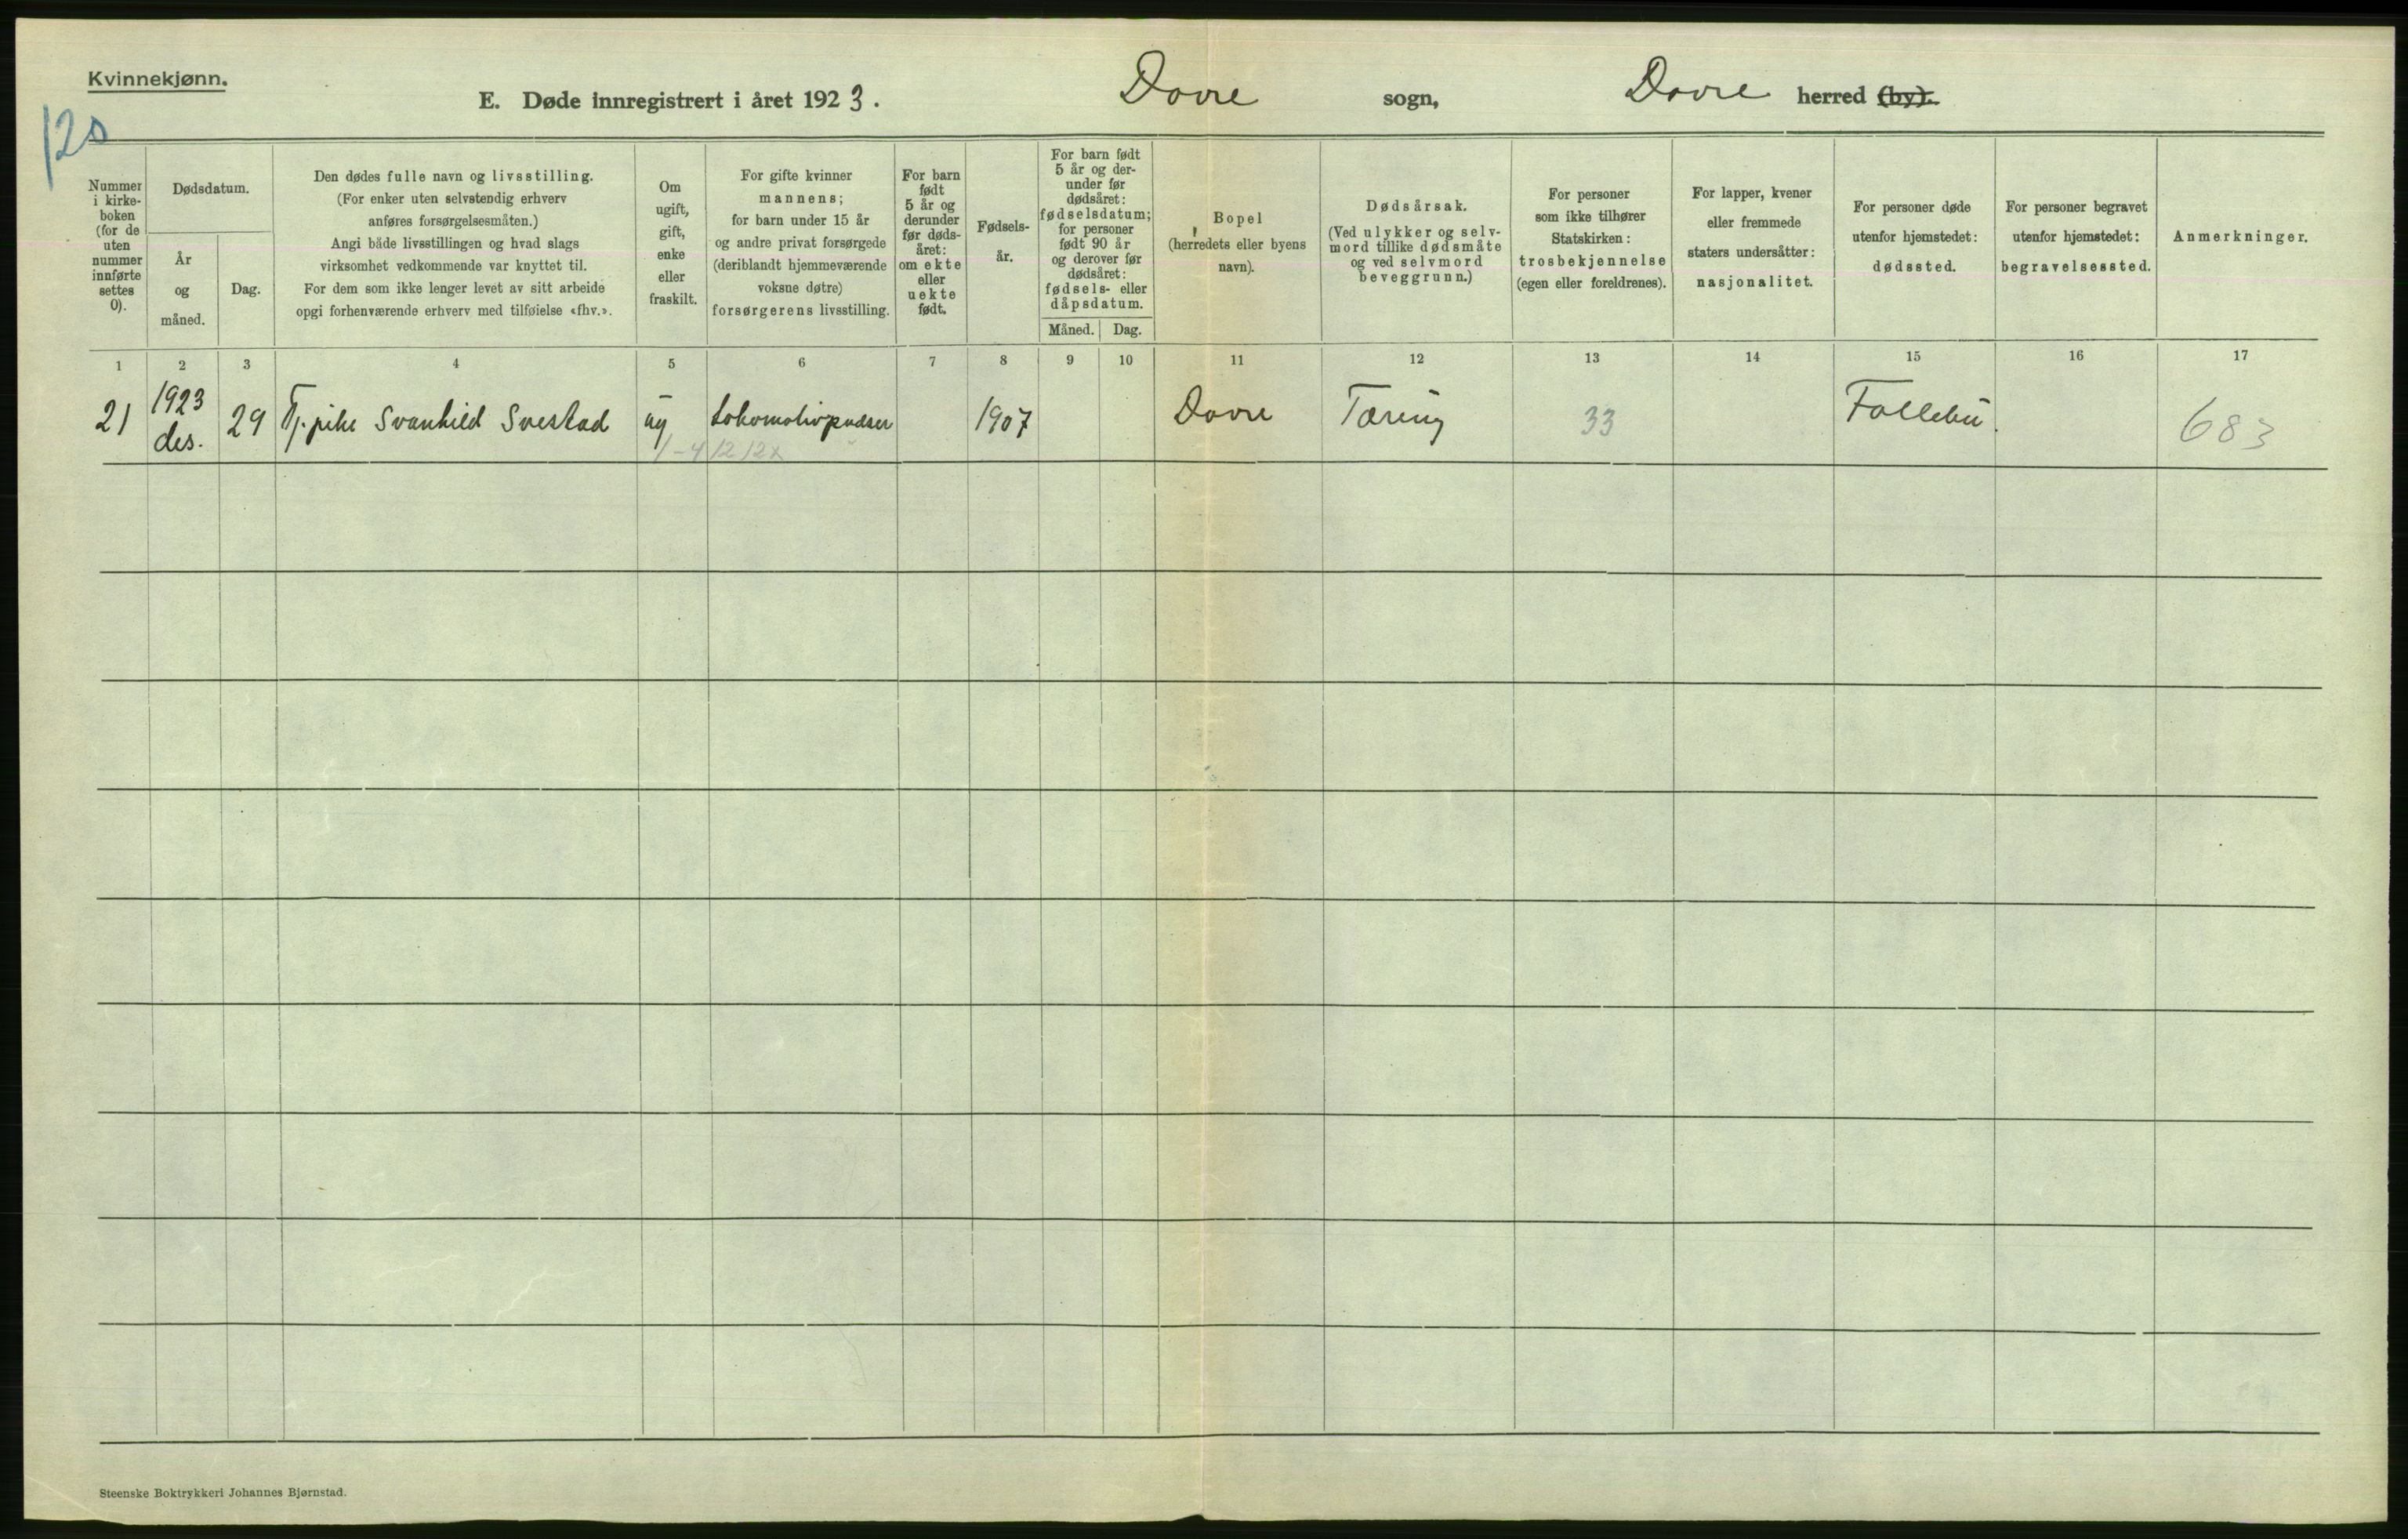 Kvinnekjønn.
120
E. Døde innregistrert i året 1923. Dovre sogn, Dovre herred (by).
Nummer
i kirke-
boken
(for de
uten
nummer
innførte
settes
0).
Dødsdatum.
År
og
måned.
Dag.
Den dødes fulle navn og livsstilling.
(For enker uten selvstendig erhverv
anføres forsørgelsesmåten.)
Angi både livsstillingen og hvad slags
virksomhet vedkommende var knyttet til.
For dem som ikke lenger levet av sitt arbeide
opgi forhenværende erhverv med tilføielse «fhv.».
Om
ugift,
gift,
enke
eller
fraskilt.
For gifte kvinner
mannens;
for barn under 15 år
og andre privat forsørgede
(deriblandt hjemmeværende
voksne døtre)
forsørgerens livsstilling.
For barn
født
5 år og
derunder
før døds-
året:
om ekte
eller
uekte
født.
Fødsels-
år.
For barn født
5 år og der-
under før
dødsåret:
fødselsdatum;
for personer
født 90 år
og derover før
dødsåret:
fødsels- eller
dåpsdatum.
Måned. Dag.
Bopel
(herredets eller byens
navn).
Dødsårsak.
(Ved ulykker og selv-
mord tillike dødsmåte
og ved selvmord
beveggrunn.)
For personer
som ikke tilhører
Statskirken:
trosbekjennelse
(egen eller foreldrenes).
For lapper, kvener
eller fremmede
staters undersåtter:
nasjonalitet.
For personer døde
utenfor hjemstedet:
dødssted.
For personer begravet
utenfor hjemstedet:
begravelsessted.
Anmerkninger.
1 2 3 4 5 6 7 8 9 10 11 12 13 14 15 16 17
21 1923 des. 29 Tj. pike Svanhild Svestad ug Lokomotivpudser 1907 Dovre Tæring 33 Follebu. 683
Steenske Boktrykkeri Johannes Bjørnstad.